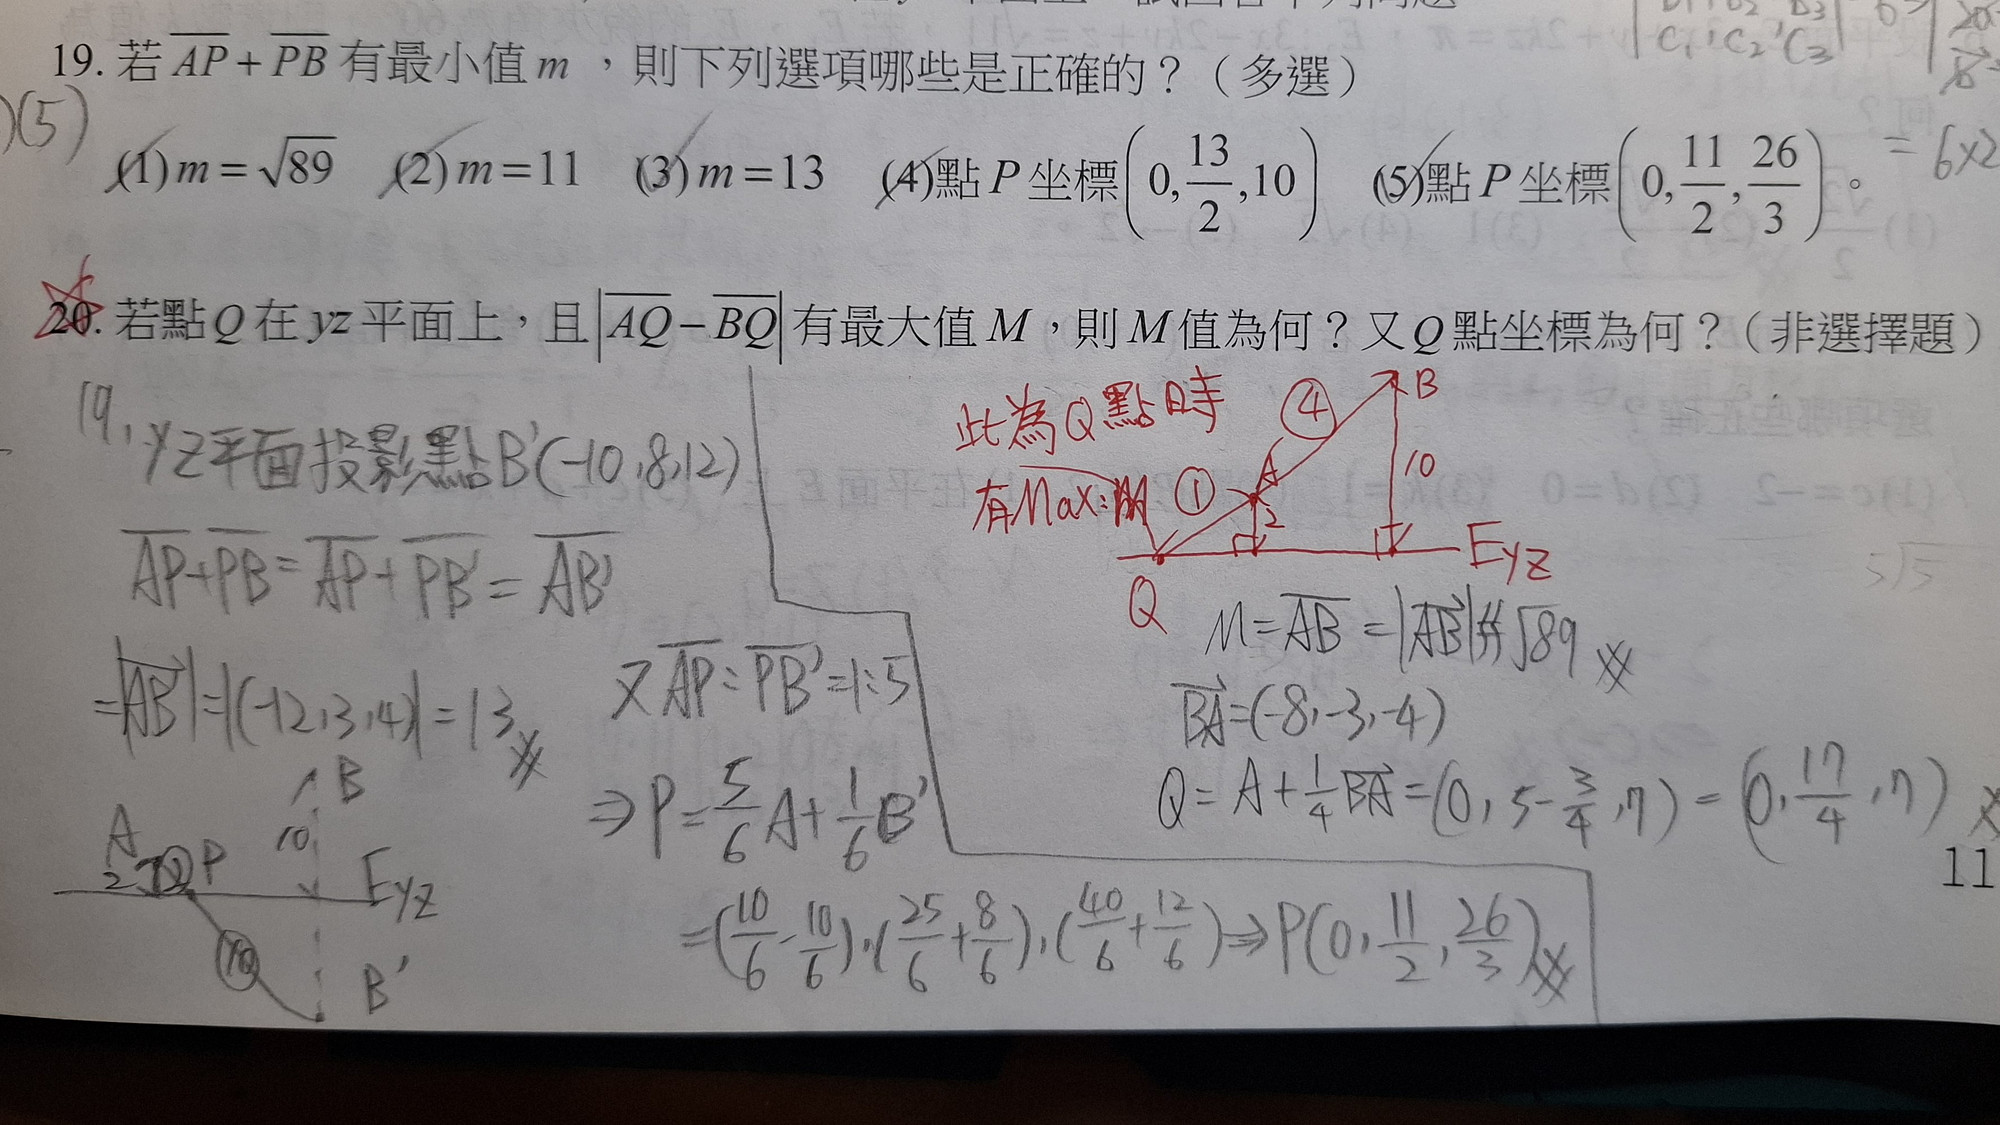 19. 若 AP + PB 有最小值 m ，則下列選項哪些是正確的？（多選）
(5)
(1) m = √89 (2) m = 11 (3) m = 13 (4)點 P 坐標 (0, 13/2, 10) (5)點 P 坐標 (0, 11/2, 26/3) 。
20. 若點 Q 在 yz 平面上，且 |AQ − BQ| 有最大值 M，則 M 值為何？又 Q 點坐標為何？（非選擇題）
19. yz平面投影點B'(-10,8,12)
AP+PB = AP+PB' = AB'
=|AB'|=|(-12,3,4)| = 13
又AP:PB'=1:5
⇒ P = 5/6 A + 1/6 B'
= (10/6 - 10/6), (25/6 + 8/6), (40/6 + 12/6) ⇒ P(0, 11/2, 26/3)
A
2
P
B
10
Eyz
B'
此為Q點時
有Max:M
① ④
A
B
2
10
Eyz
Q
M = AB = |AB| = √89
BA = (-8,-3,-4)
Q = A + 1/4 BA = (0, 5 - 3/4, 7) = (0, 17/4, 7)
11